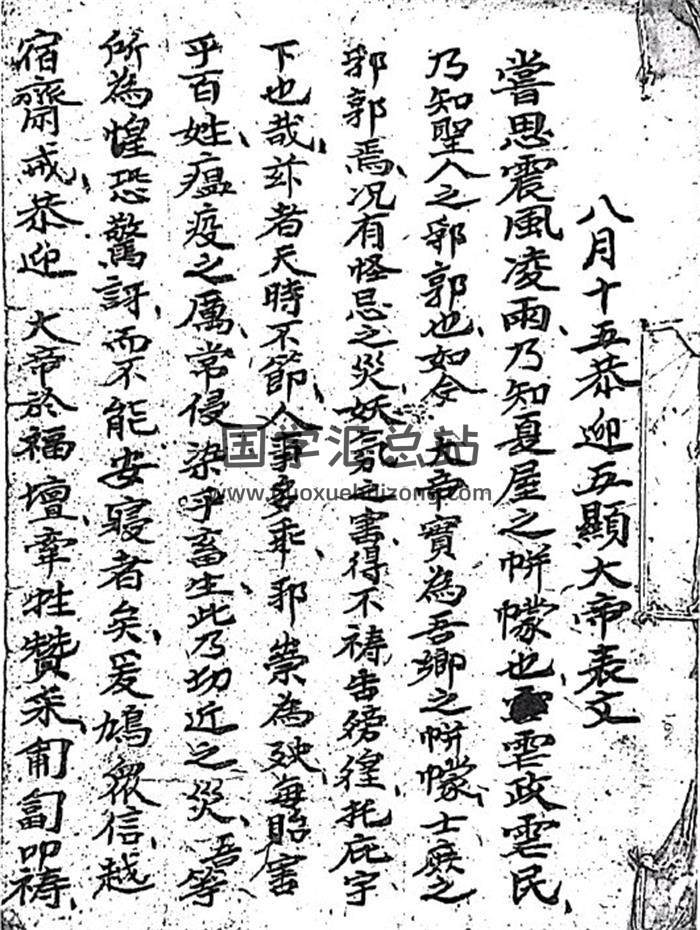 八月十五恭迎五顯大帝表文
嘗思震風凌雨、乃知夏屋之帡幪也、虐政虐民、
乃知聖人之郛郭也、如今 五帝寶為吾鄉之帡幪、士庶之
郛郭焉、况有怪忌之災、妖氛之害、得不禱告徬徨、托庇宇
下也哉、玆者天時不節、人事多乖、邪祟為殃、每貽害
乎百姓、瘟疫之厲、常侵染乎畜生、此乃切近之災、吾等
所為惶恐驚訝、而不能安寢者矣、爰鳩衆信、越
宿齋戒、恭迎 大帝於福壇、牽牲贊采、匍匐叩禱、
国学汇总站
www.guoxuehuizong.com